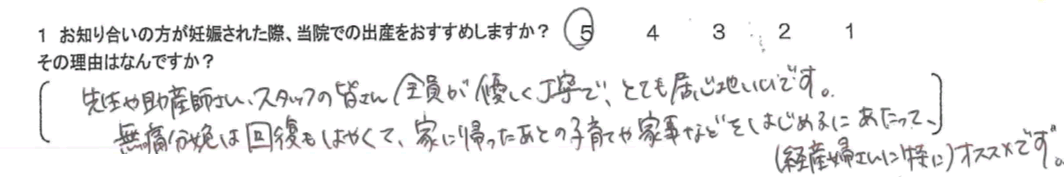 1 お知り合いの方が妊娠された際、当院での出産をおすすめしますか? 5 4 3 2 1
その理由はなんですか?
先生や助産師さん、スタッフの皆さん全員が優しく丁寧で、とても居心地いいです。
無痛分娩は回復もはやくて、家に帰ったあとの子育てや家事などをはじめるにあたって、
(経産婦さんに特に)オススメです。